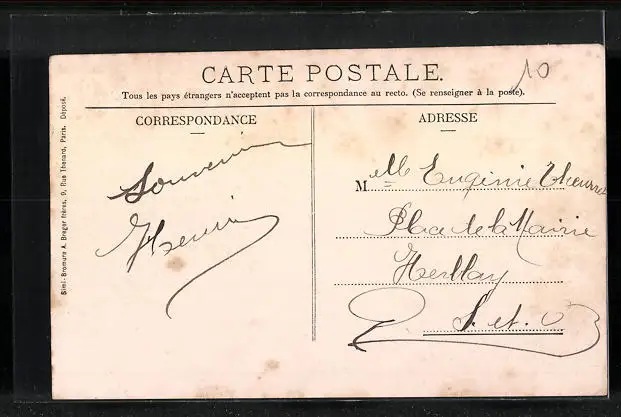 10
CARTE POSTALE.
Tous les pays étrangers n'acceptent pas la correspondance au recto. (Se renseigner à la poste).
CORRESPONDANCE
Souvenir
Henri
ADRESSE
Melle Eugénie
Place de la Mairie
Herblay
S. et. O
Simi-Bromure A. Breger frères, 9, Rue Thénard, Paris. Déposé.